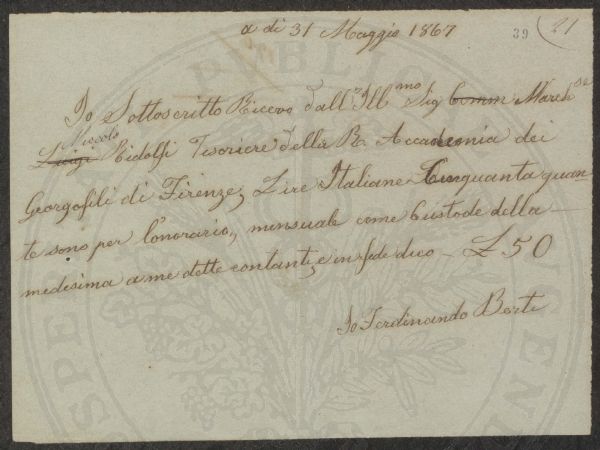 a di 31 Maggio 1867
39 21
Io Sottoscritto Ricevo dall' Ill.mo Sig Comm March.se
Niccolo
Luigi Ridolfi Tesoriere della R. Accademia dei
Georgofili di Firenze, Lire Italiane Cinquanta quan
te sono per l'onorario, mensuale come Custode della
medesima a me dette contanti, e in fede dico — £ 50
Io Ferdinando Berti